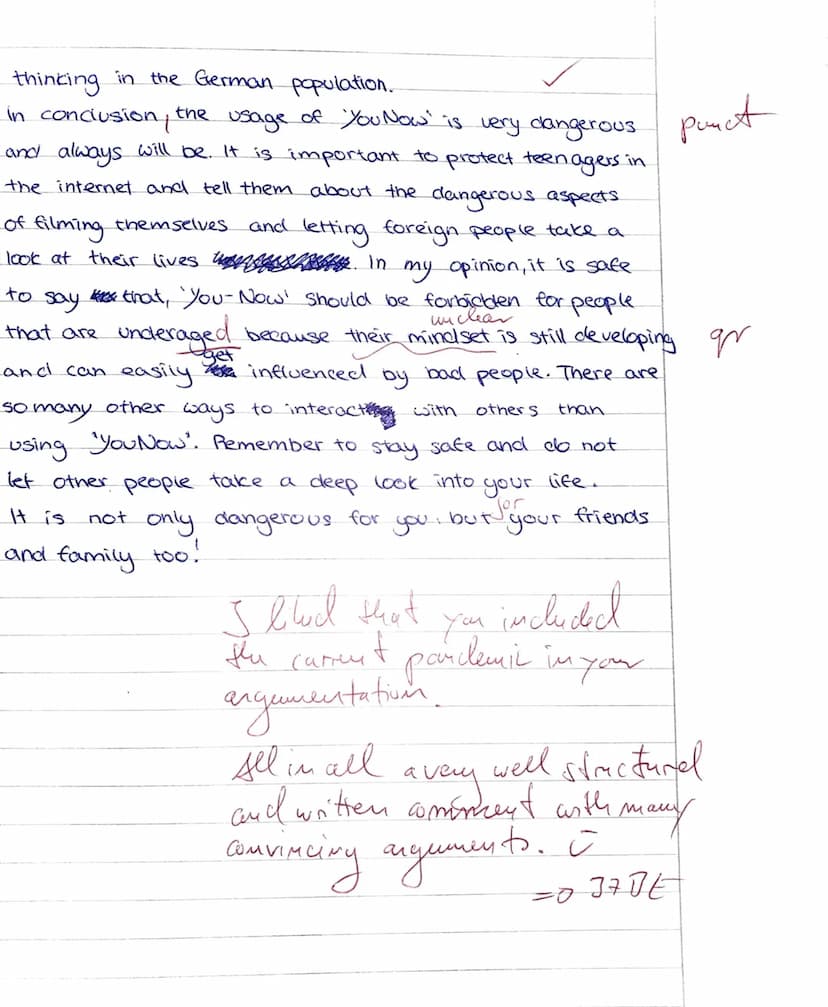 thinking in the German population.
In conclusion, the usage of 'YouNow' is very dangerous punct
and always will be. It is important to protect teenagers in
the internet and tell them about the dangerous aspects
of filming themselves and letting foreign people take a
look at their lives . In my opinion, it is safe
to say that, 'You-Now' should be forbidden for people
unclear
that are underaged because their mindset is still developing gr
get
and can easily influenced by bad people. There are
so many other ways to interact with others than
using 'YouNow'. Remember to stay safe and do not
let other people take a deep look into your life.
for
It is not only dangerous for you, but your friends
and family too!
I liked that you included
the current pandemic in your
argumentation.
All in all a very well structured
and written comment with many
convincing arguments.
BE